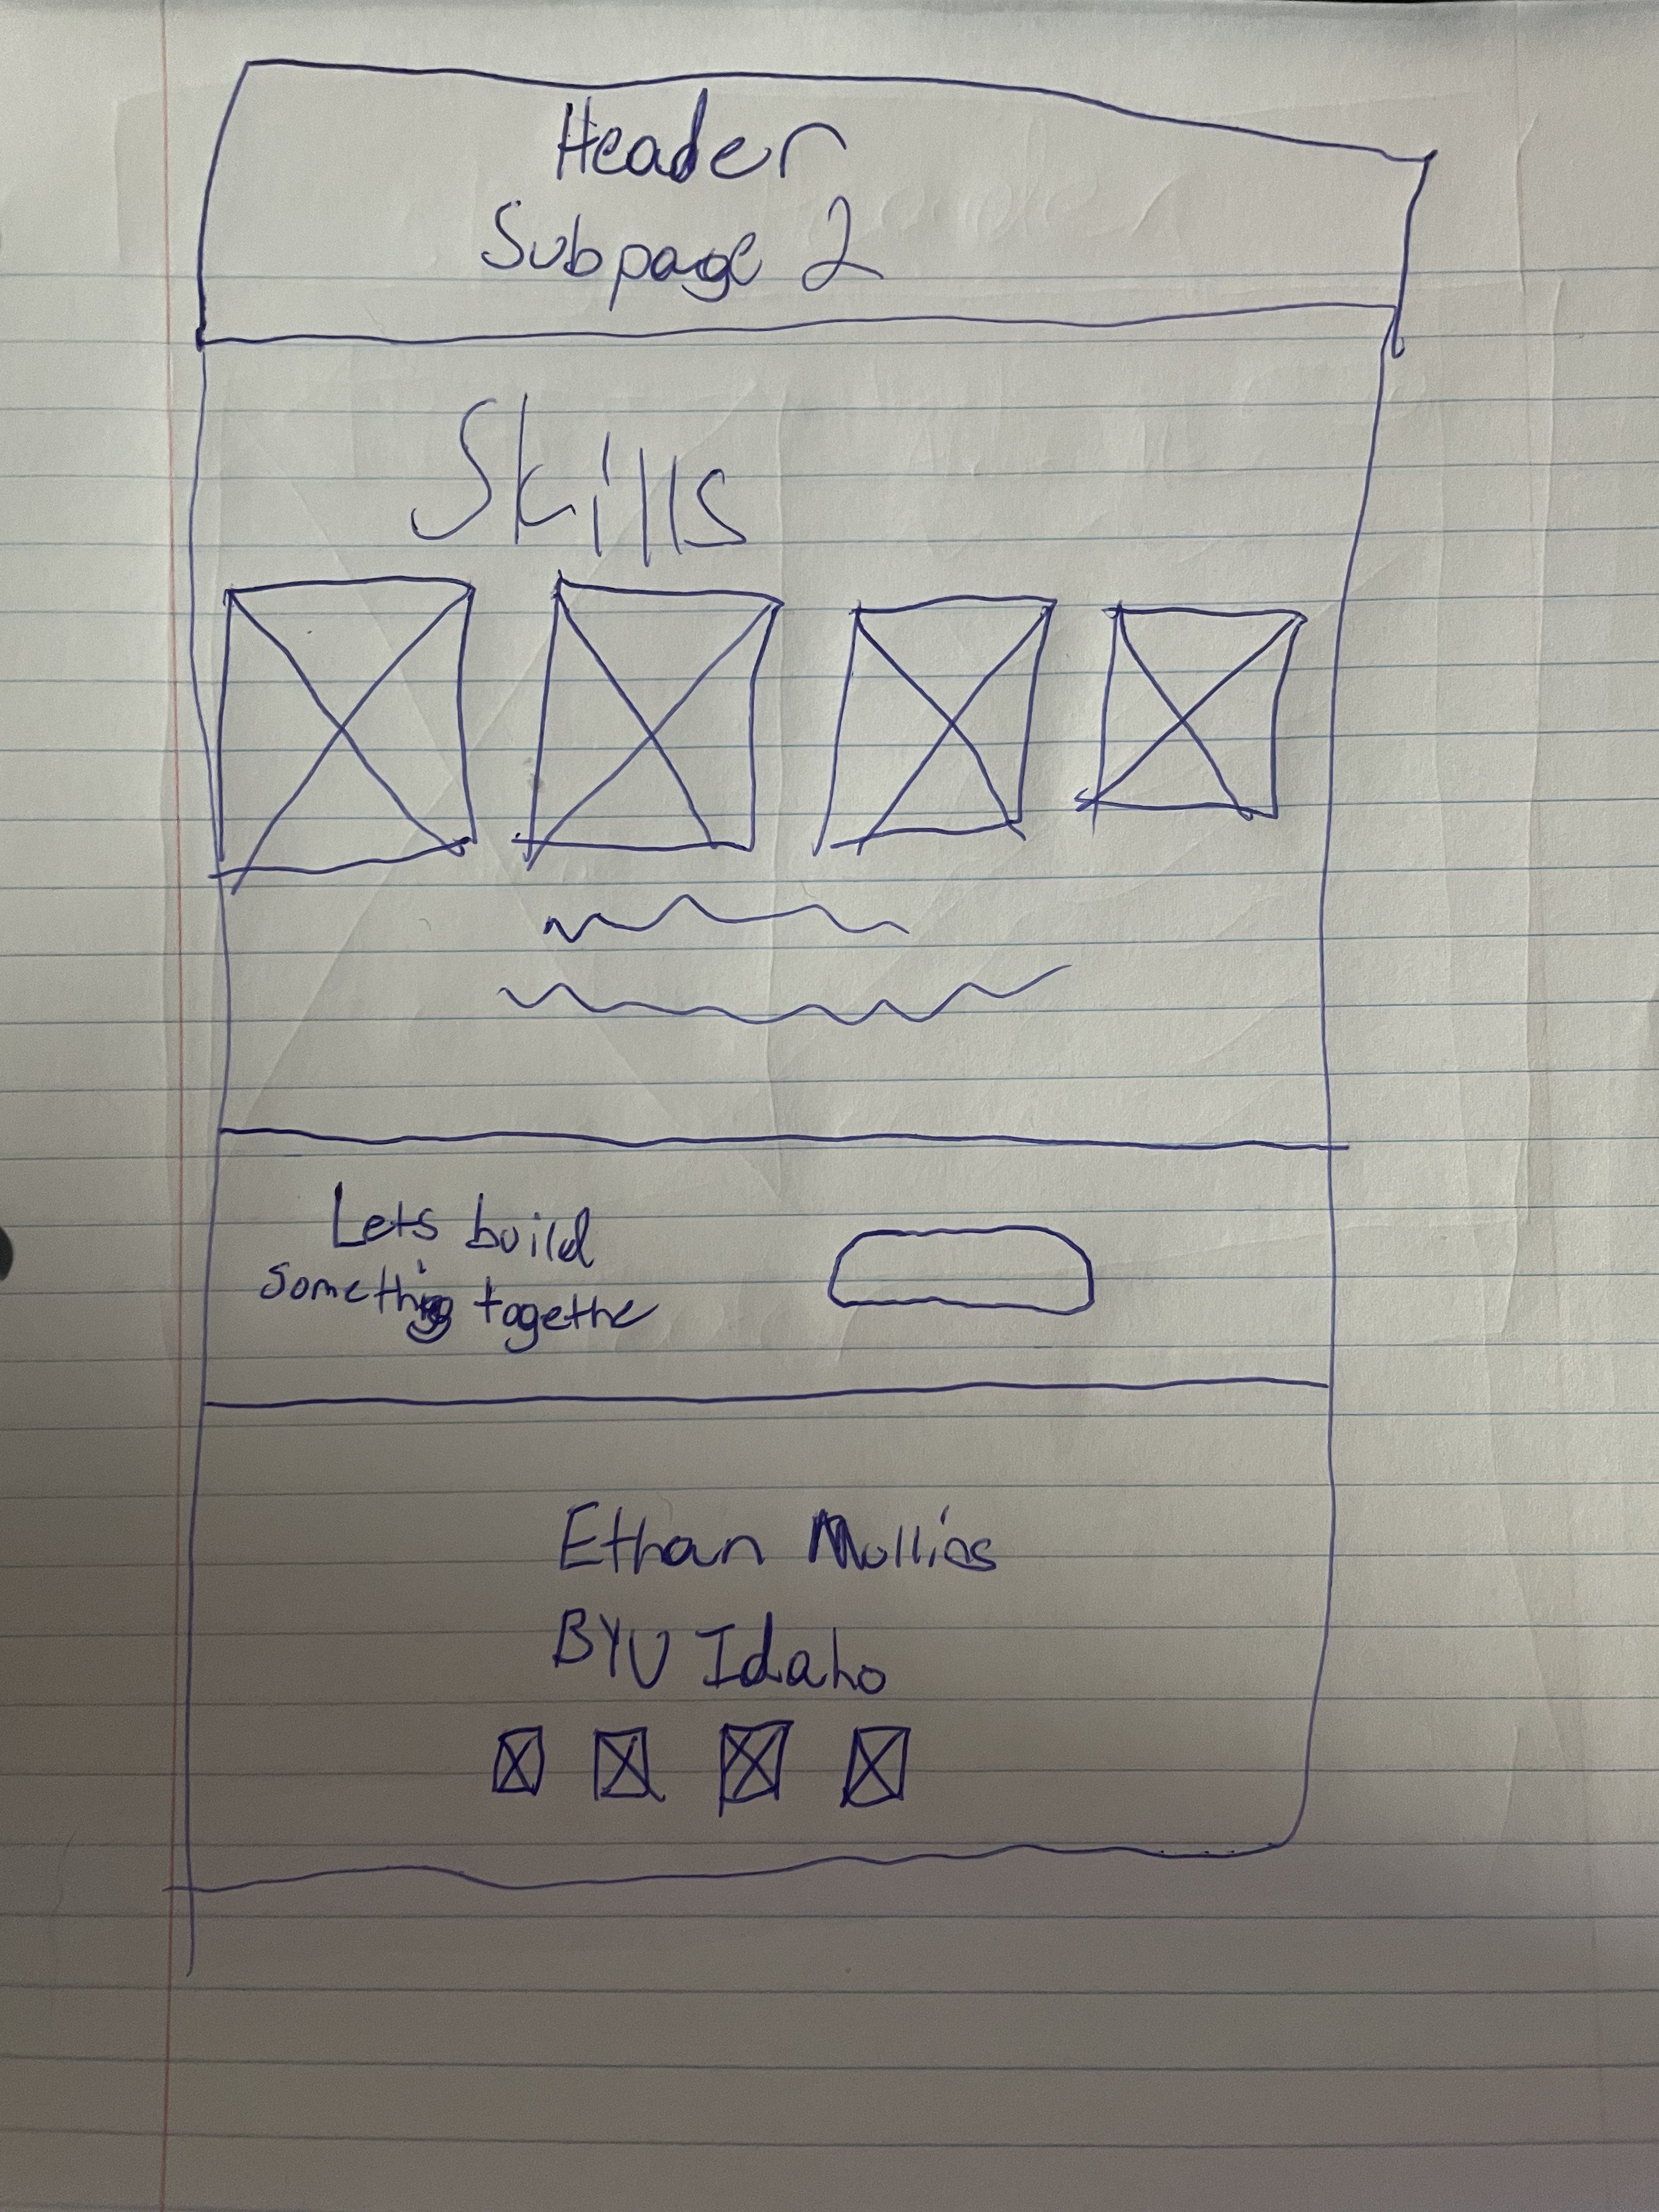 Header
Subpage 2
Skills
Lets build
something togethe
Ethan Mullins
BYU Idaho